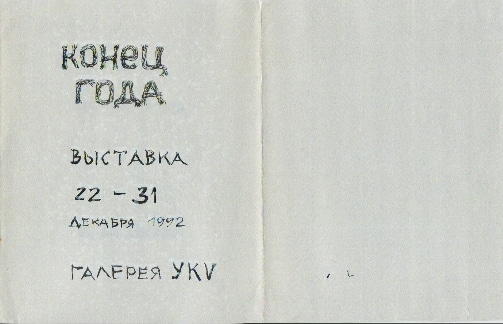 КОНЕЦ
ГОДА
ВЫСТАВКА
22 - 31
ДЕКАБРЯ 1992
ГАЛЕРЕЯ УКV